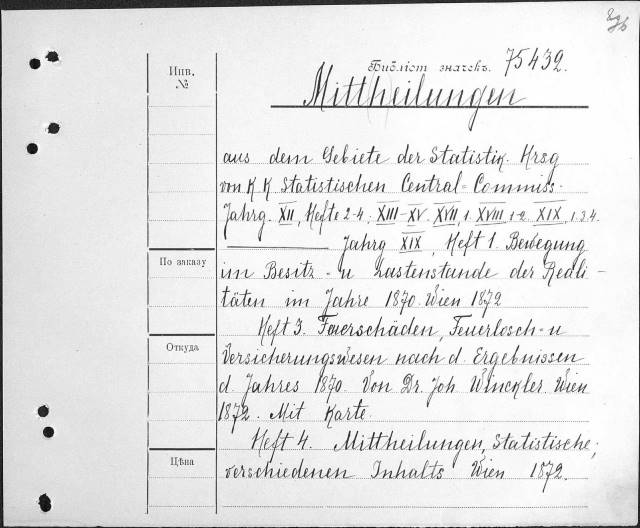 Инв. №
Библіот значекъ. 75432.
Mittheilungen
aus dem Gebiete der Statistik. Hrsg
von K K Statistischen Central-Commiss.
Jahrg. XII, Hefte 2-4, XIII-XV. XVII, 1. XVIII, 1-2. XIX, 1.3.4.
Jahrg XIX, Heft 1. Bewegung
По заказу
im Besitz- u Lastenstande der Reali-
täten im Jahre 1870. Wien 1872
Heft 3. Faerschäden, Feuerlosch- u
Откуда
Versicherungswesen nach d. Ergebnissen
d. Jahres 1870. Von Dr. Joh Winckler. Wien
1872. Mit Karte.
Heft 4. Mittheilungen, Statistische,
Цѣна
verschiedenen Inhalts Wien 1872.